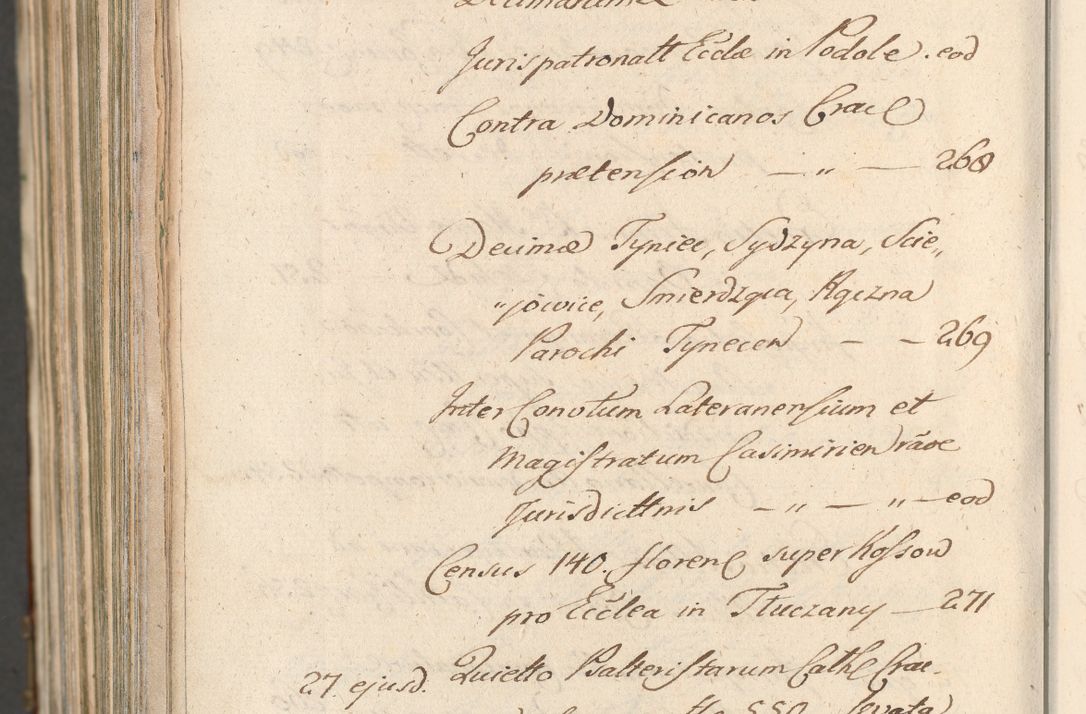 Jurispatronatt Eccłæ in Podole . eod
Contra Dominicanos Crac
prætension — „ — 268
Decimæ Tyniec, Sydzyna, Scie„
„jowice, Smierdząca, Rączna
Parochi Tynecen — — 269
Inter Conotum Lateranensium et
Magistratum Casimirien rāoe
Jurisdicttnis — „ — „ — eod
Census 140. floren super Kossow
pro Eccłea in Tłuczany — 271
27. ejusd. Quietto Psalteristarum Cath Crac.
550 levata